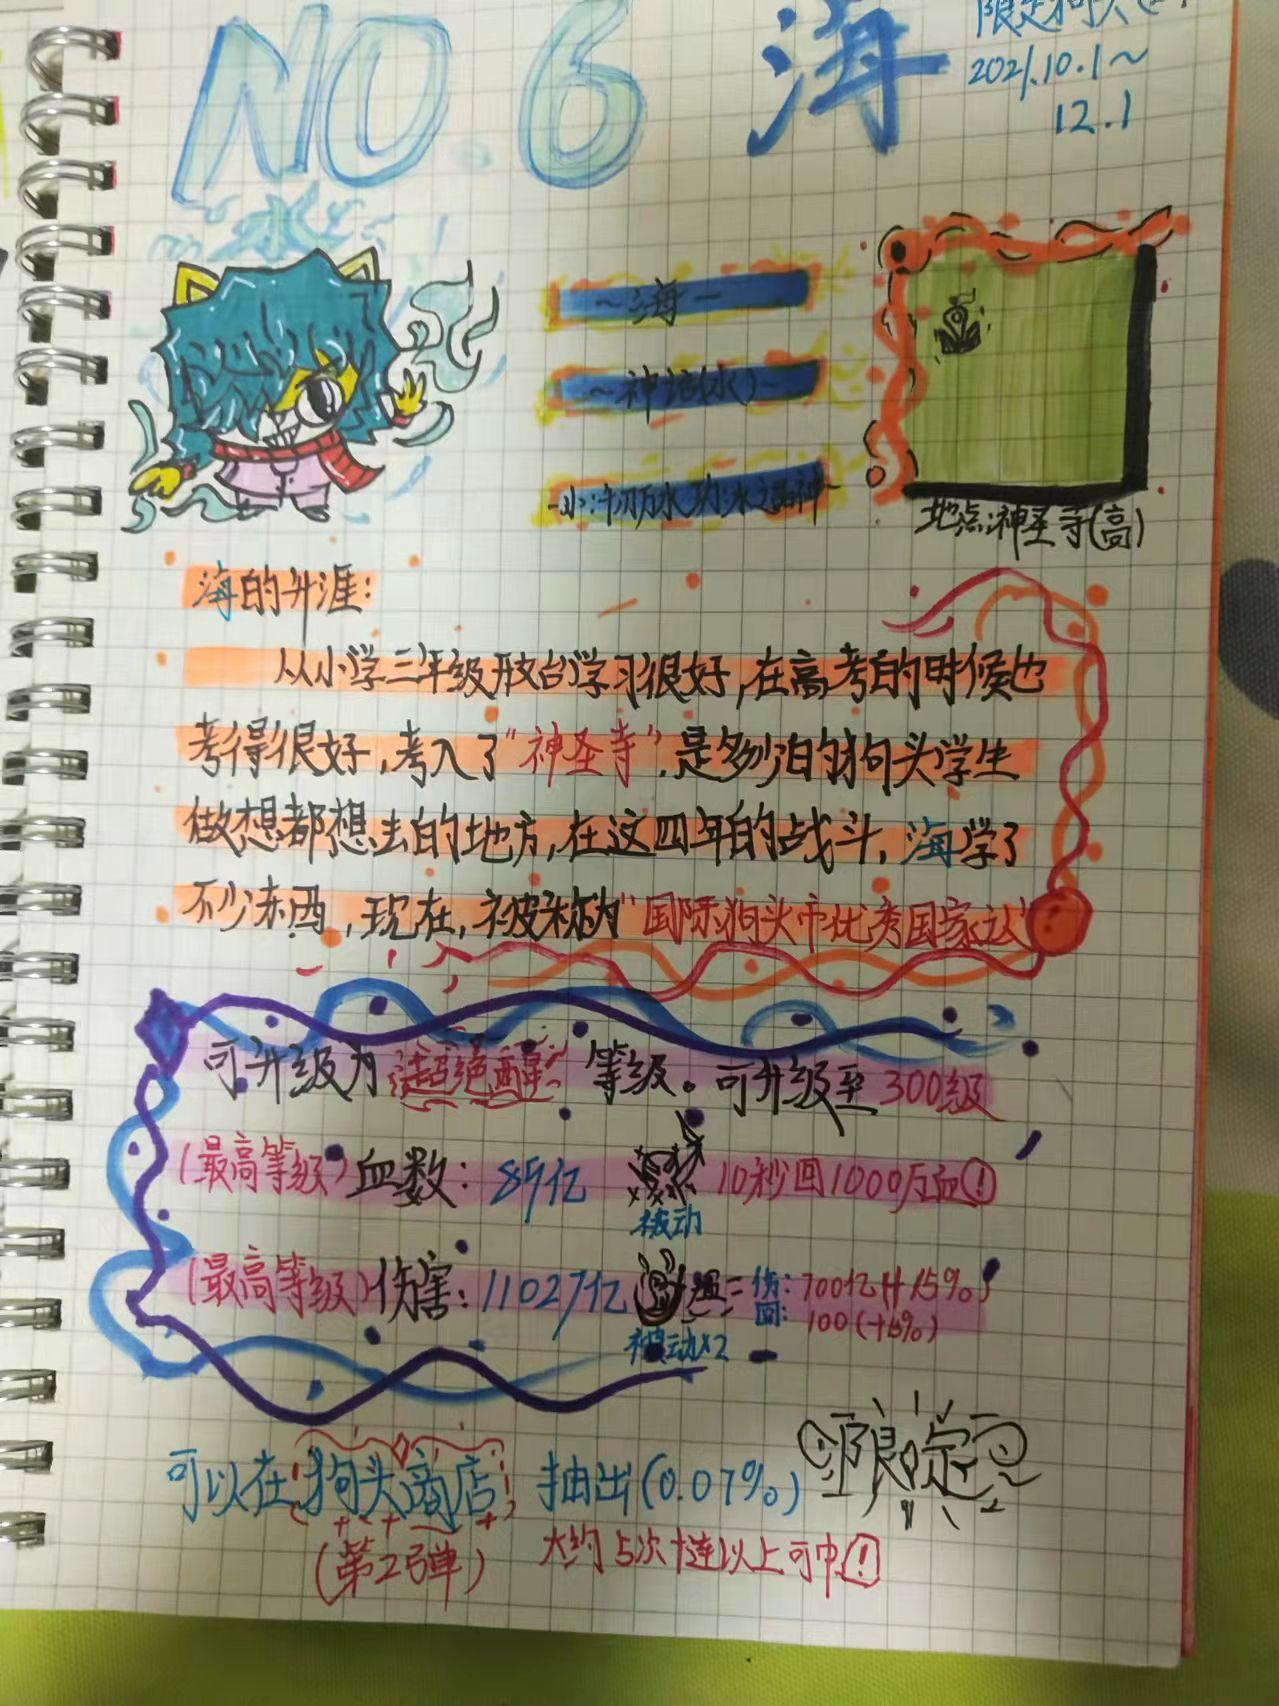 NO.6 海
限定狗头
2021.10.1~
12.1
水
~海~
~神话(水)~
地点:神圣寺(高)
海的升涯:
从小学三年级开台学习很好,在高考的时候也
考得很好,考入了“神圣寺”,是多少泊的狗头学生
做想都想去的地方,在这四年的战斗,海学了
不少东西,现在,被称为“国际狗头币优秀国家认”
可升级为 超绝醒 等级。可升级至 300级
(最高等级)血数: 89亿 10秒回1000万血!
被动
(最高等级)伤害:11027亿 = 伤: 700亿(+15%)
回: 100(+6%)
被动x2
可以在 狗头商店 抽出(0.07%) 限定
(第2弹) 大约5次十连以上可中!